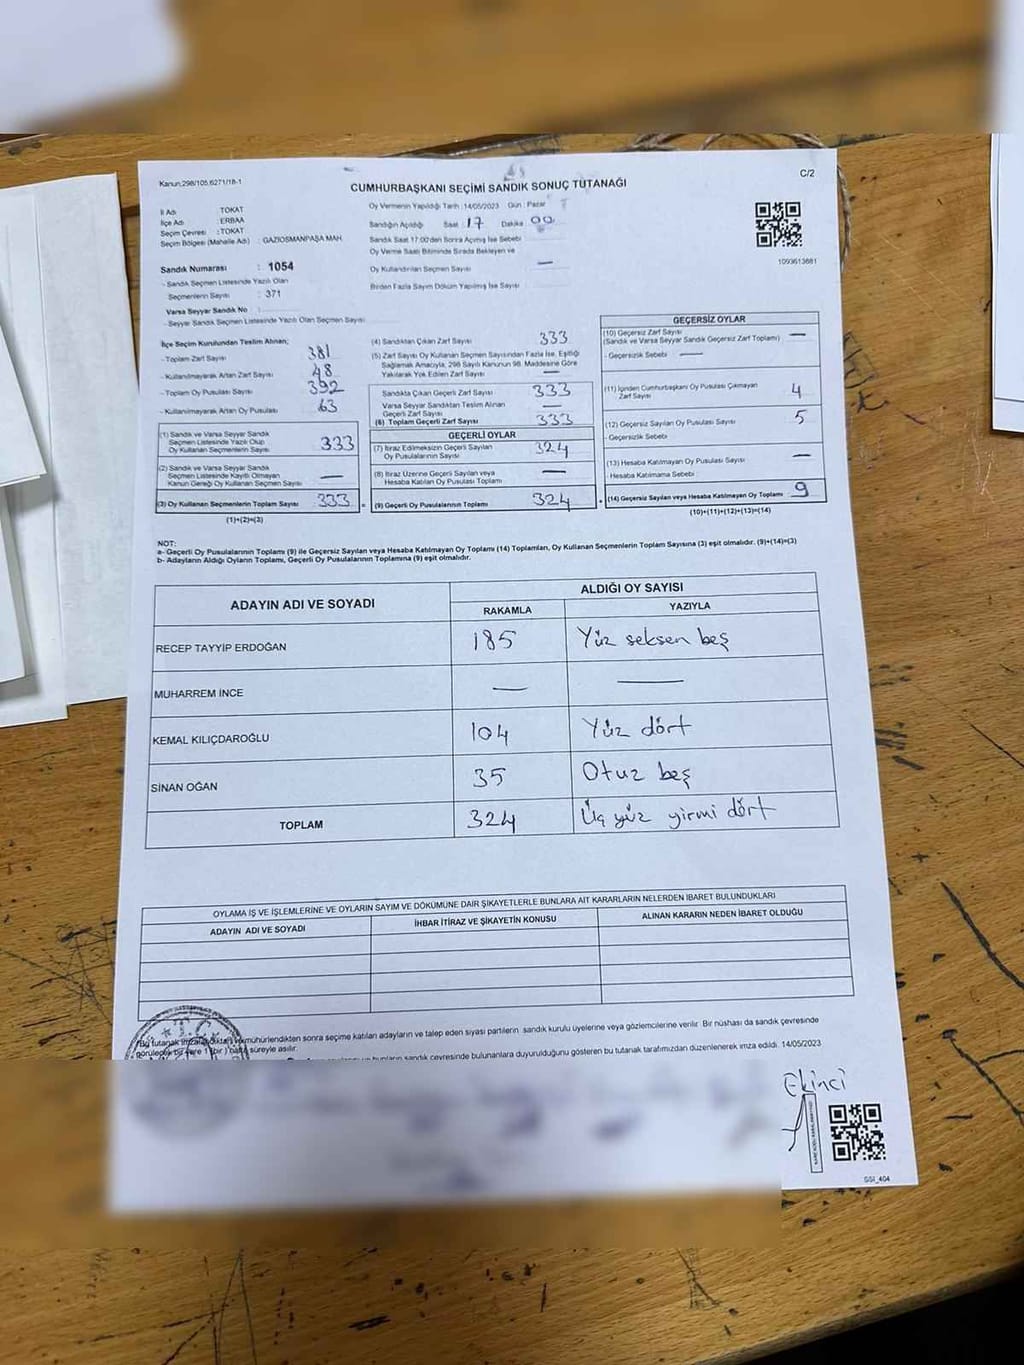 Kanun:298/105,6271/18-1
C/2
CUMHURBAŞKANI SEÇİMİ SANDIK SONUÇ TUTANAĞI
İl Adı : TOKAT
İlçe Adı : ERBAA
Seçim Çevresi : TOKAT
Seçim Bölgesi (Mahalle Adı) : GAZİOSMANPAŞA MAH.
Sandık Numarası : 1054
- Sandık Seçmen Listesinde Yazılı Olan
Seçmenlerin Sayısı : 371
Varsa Seyyar Sandık No :
- Seyyar Sandık Seçmen Listesinde Yazılı Olan Seçmen Sayısı
Oy Vermenin Yapıldığı Tarih : 14/05/2023 Gün : Pazar
Sandığın Açıldığı Saat : 17 Dakika 00
Sandık Saat 17:00'den Sonra Açılmış İse Sebebi
Oy Verme Saati Bitiminde Sırada Bekleyen ve
Oy Kullandırılan Seçmen Sayısı —
Birden Fazla Sayım Döküm Yapılmış İse Sayısı
1093613681
İlçe Seçim Kurulundan Teslim Alınan;
- Toplam Zarf Sayısı 381
- Kullanılmayarak Artan Zarf Sayısı 48
- Toplam Oy Pusulası Sayısı 392
- Kullanılmayarak Artan Oy Pusulası 63
(1) Sandık ve Varsa Seyyar Sandık
Seçmen Listesinde Yazılı Olup
Oy Kullanan Seçmenlerin Sayısı 333
(2) Sandık ve Varsa Seyyar Sandık
Seçmen Listesinde Kayıtlı Olmayan
Kanun Gereği Oy Kullanan Seçmen Sayısı —
(3) Oy Kullanan Seçmenlerin Toplam Sayısı 333
(1)+(2)=(3)
(4) Sandıktan Çıkan Zarf Sayısı 333
(5) Zarf Sayısı Oy Kullanan Seçmen Sayısından Fazla İse, Eşitliği
Sağlamak Amacıyla, 298 Sayılı Kanunun 98. Maddesine Göre
Yakılarak Yok Edilen Zarf Sayısı —
Sandıkta Çıkan Geçerli Zarf Sayısı 333
Varsa Seyyar Sandıktan Teslim Alınan
Geçerli Zarf Sayısı —
(6) Toplam Geçerli Zarf Sayısı 333
GEÇERLİ OYLAR
(7) İtiraz Edilmeksizin Geçerli Sayılan
Oy Pusulalarının Sayısı 324
(8) İtiraz Üzerine Geçerli Sayılan veya
Hesaba Katılan Oy Pusulası Toplamı —
= (9) Geçerli Oy Pusulalarının Toplamı 324
GEÇERSİZ OYLAR
(10) Geçersiz Zarf Sayısı
(Sandık ve Varsa Seyyar Sandık Geçersiz Zarf Toplamı) —
- Geçersizlik Sebebi —
(11) İçinden Cumhurbaşkanı Oy Pusulası Çıkmayan
Zarf Sayısı 4
(12) Geçersiz Sayılan Oy Pusulası Sayısı 5
- Geçersizlik Sebebi
(13) Hesaba Katılmayan Oy Pusulası Sayısı —
- Hesaba Katılmama Sebebi
+ (14) Geçersiz Sayılan veya Hesaba Katılmayan Oy Toplamı 9
(10)+(11)+(12)+(13)=(14)
NOT:
a- Geçerli Oy Pusulalarının Toplamı (9) ile Geçersiz Sayılan veya Hesaba Katılmayan Oy Toplamı (14) Toplamları, Oy Kullanan Seçmenlerin Toplam Sayısına (3) eşit olmalıdır. (9)+(14)=(3)
b- Adayların Aldığı Oyların Toplamı, Geçerli Oy Pusulalarının Toplamına (9) eşit olmalıdır.
ADAYIN ADI VE SOYADI
ALDIĞI OY SAYISI
RAKAMLA YAZIYLA
RECEP TAYYİP ERDOĞAN 185 Yüz seksen beş
MUHARREM İNCE — —
KEMAL KILIÇDAROĞLU 104 Yüz dört
SİNAN OĞAN 35 Otuz beş
TOPLAM 324 Üç yüz yirmi dört
OYLAMA İŞ VE İŞLEMLERİNE VE OYLARIN SAYIM VE DÖKÜMÜNE DAİR ŞİKAYETLERLE BUNLARA AİT KARARLARIN NELERDEN İBARET BULUNDUKLARI
ADAYIN ADI VE SOYADI İHBAR İTİRAZ VE ŞİKAYETİN KONUSU ALINAN KARARIN NEDEN İBARET OLDUĞU
Bu tutanak mühürlendikten sonra seçime katılan adayların ve talep eden siyasi partilerin sandık kurulu üyelerine veya gözlemcilerine verilir. Bir nüshası da sandık çevresinde
görülecek bir yere 1 (bir) hafta süreyle asılır.
bunların sandık çevresinde bulunanlara duyurulduğunu gösteren bu tutanak tarafımızdan düzenlenerek imza edildi. 14/05/2023
T.C.
Ekinci
GSI_404